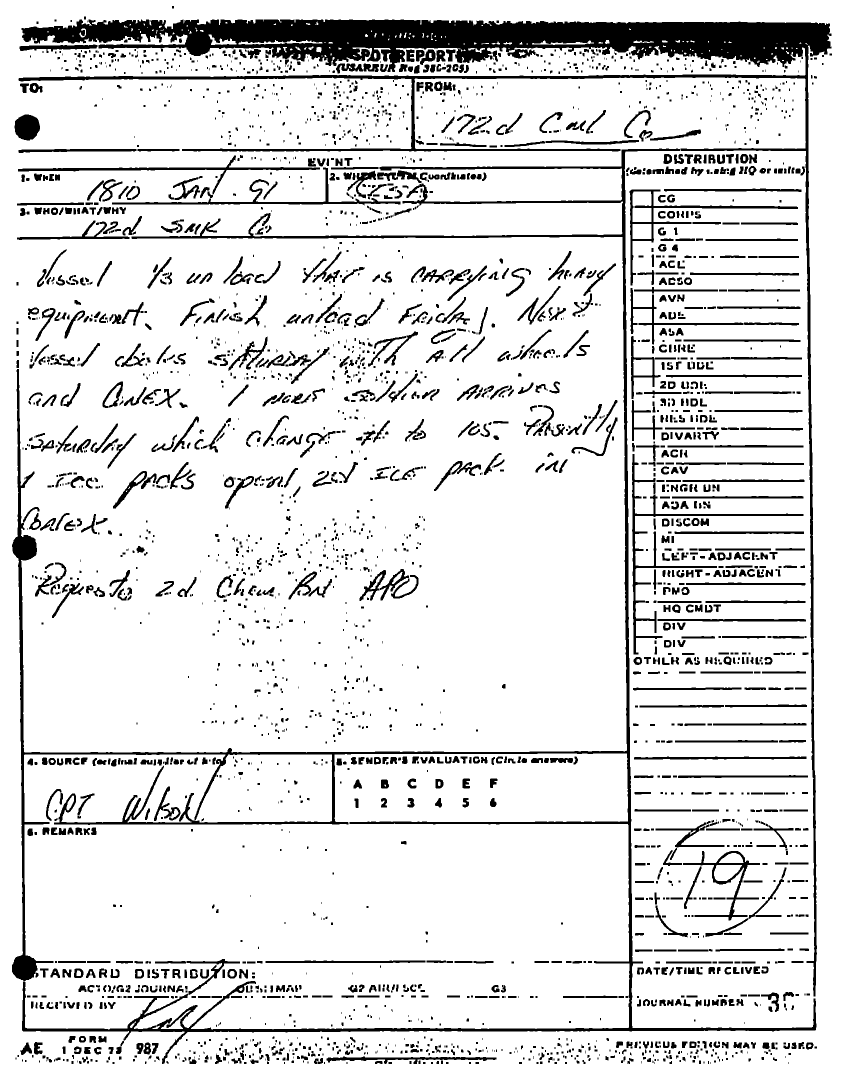 SPOT REPORT
(USAREUR Reg 380-205)
TO:
FROM:
172d Cml Co
EVENT
1. WHEN
1810 JAN 91
2. WHERE (UTM Coordinates)
3. WHO/WHAT/WHY
172d SMK Co
Vessel 1/3 unload that is CARRYING heavy
equipment. Finish unload Friday. Next
Vessel docks SATURDAY with All wheels
and ConEX. 1 more soldier ARRIVES
SATURDAY which change # to 105. Presently
1 Ice packs open, 2d ICE pack in
ConEX.
Requests 2d Chem Bn APO
DISTRIBUTION
(determined by using HQ or units)
CG
CORPS
G 1
G 4
ACL
ADSO
AVN
ADE
ASA
CHRE
1ST BDE
2D BDE
3D BDE
RES BDE
DIVARTY
ACR
CAV
ENGR BN
ADA BN
DISCOM
MI
LEFT-ADJACENT
RIGHT-ADJACENT
PMO
HQ CMDT
DIV
DIV
OTHER AS REQUIRED
4. SOURCE (original supplier of info)
CPT Wilson
5. SENDER'S EVALUATION (Circle answers)
A B C D E F
1 2 3 4 5 6
6. REMARKS
19
STANDARD DISTRIBUTION:
ACTO/G2 JOURNAL G2 SITMAP G2 AIR/FSCE G3
RECEIVED BY
DATE/TIME RECEIVED
JOURNAL NUMBER 30
AE FORM 1 DEC 78 987
PREVIOUS EDITION MAY BE USED.